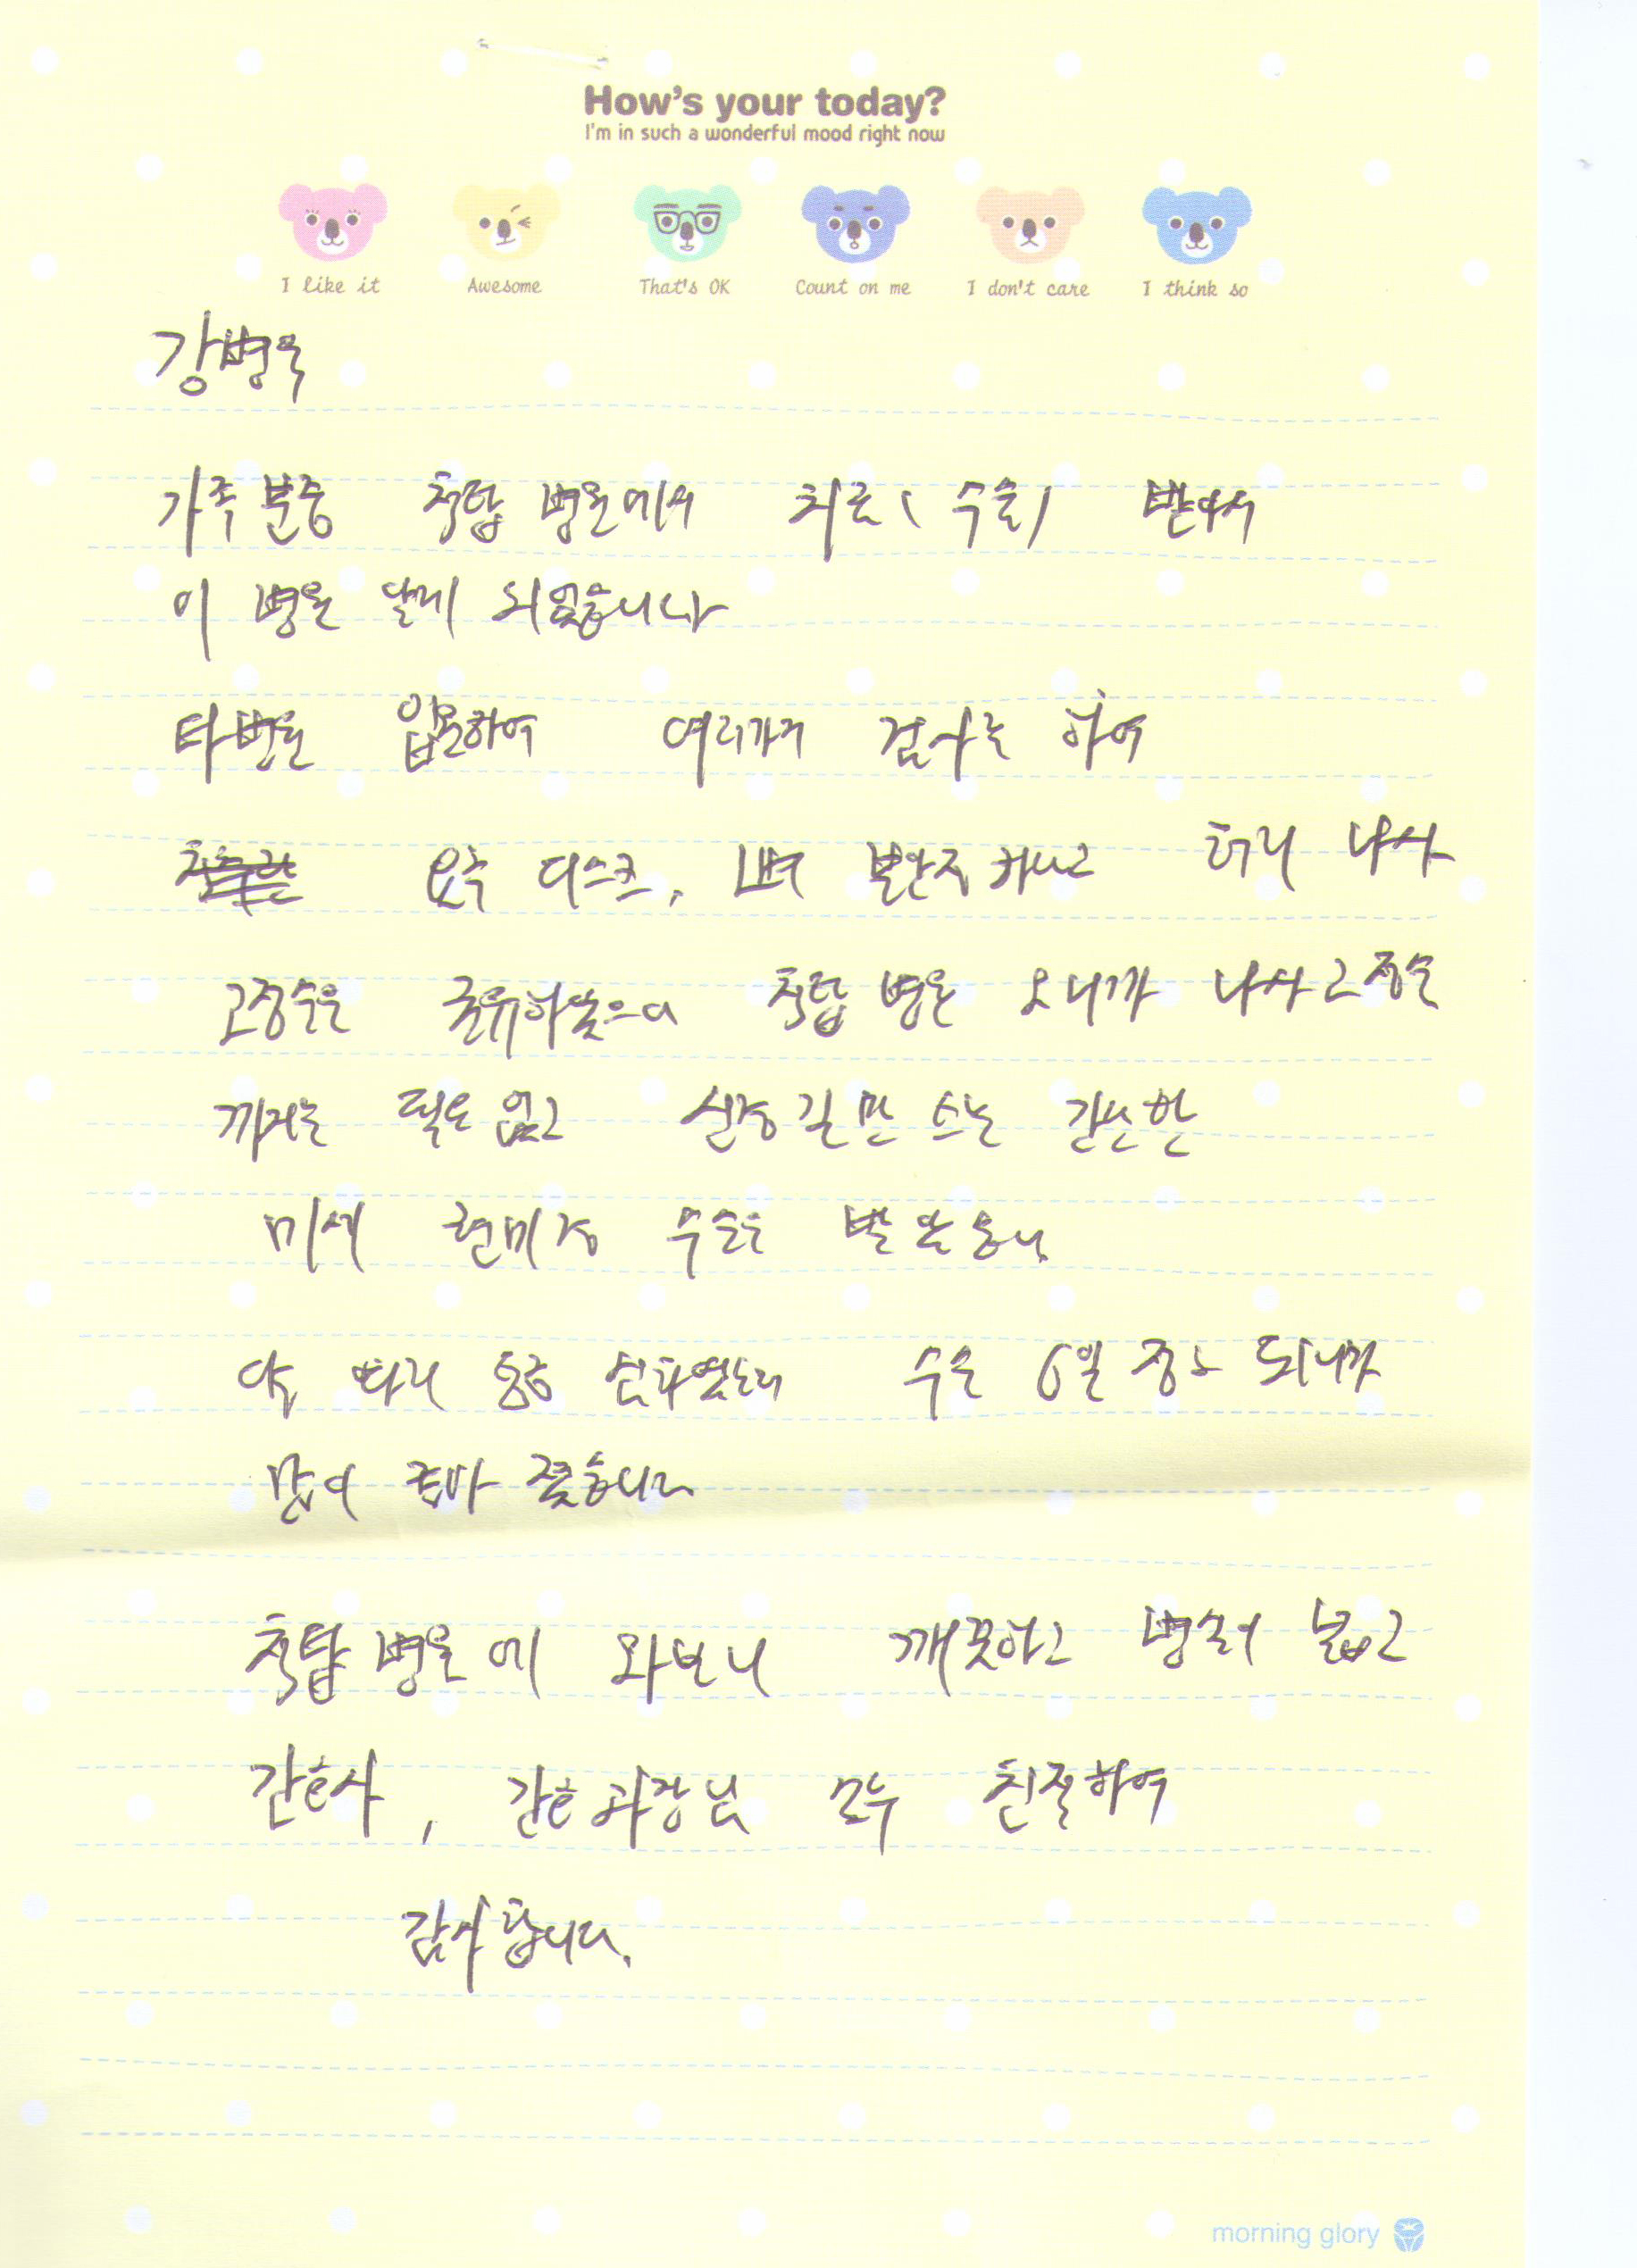 How's your today?
I'm in such a wonderful mood right now
I like it Awesome That's OK Count on me I don't care I think so
강병욱
가족분중 척탑병원에서 치료(수술) 받아서
이 병원 알게 되었습니다
타병원 입원하여 여러가지 검사는 하여
요추 디스크, 뼈 불안정하고 허리 나사
고정술을 권유하였으나 척탑병원 오니까 나사고정술
까지는 필요없고 신경길만 뜨는 간단한
미세 현미경 수술을 받았습니다
수술 6일 정도 되니까
많이 좋습니다
척탑병원에 와보니 깨끗하고 병실이 넓고
간호사, 간호과장님 모두 친절하여
감사합니다.
morning glory